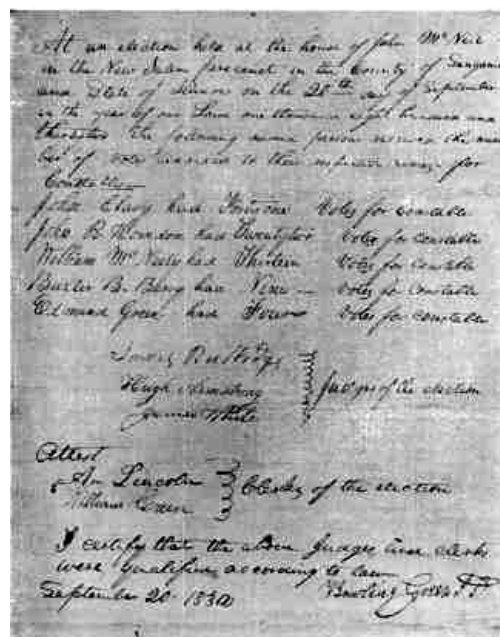 At an election held at the house of John McNeil
in the New Salem precinct in the County of Sangamo
and State of Illinois on the 20th day of September
in the year of our Lord one thousand eight hundred and
the following named persons received the num
ber of votes annexed to their respective names for
Constable
John Clary had Votes for constable
John R Herndon had Twentytwo Votes for constable
William McNeely had Thirteen Votes for constable
Baxter B. Berry had Nine — Votes for constable
Edmund Greer had Four Votes for constable
James Rutledge
Hugh Armstrong Judges of the election
James White
Attest
A Lincoln Clerks of the election
William Green
I certify that the above Judges and clerks
were qualified according to law
September 20 1832 Bowling Green